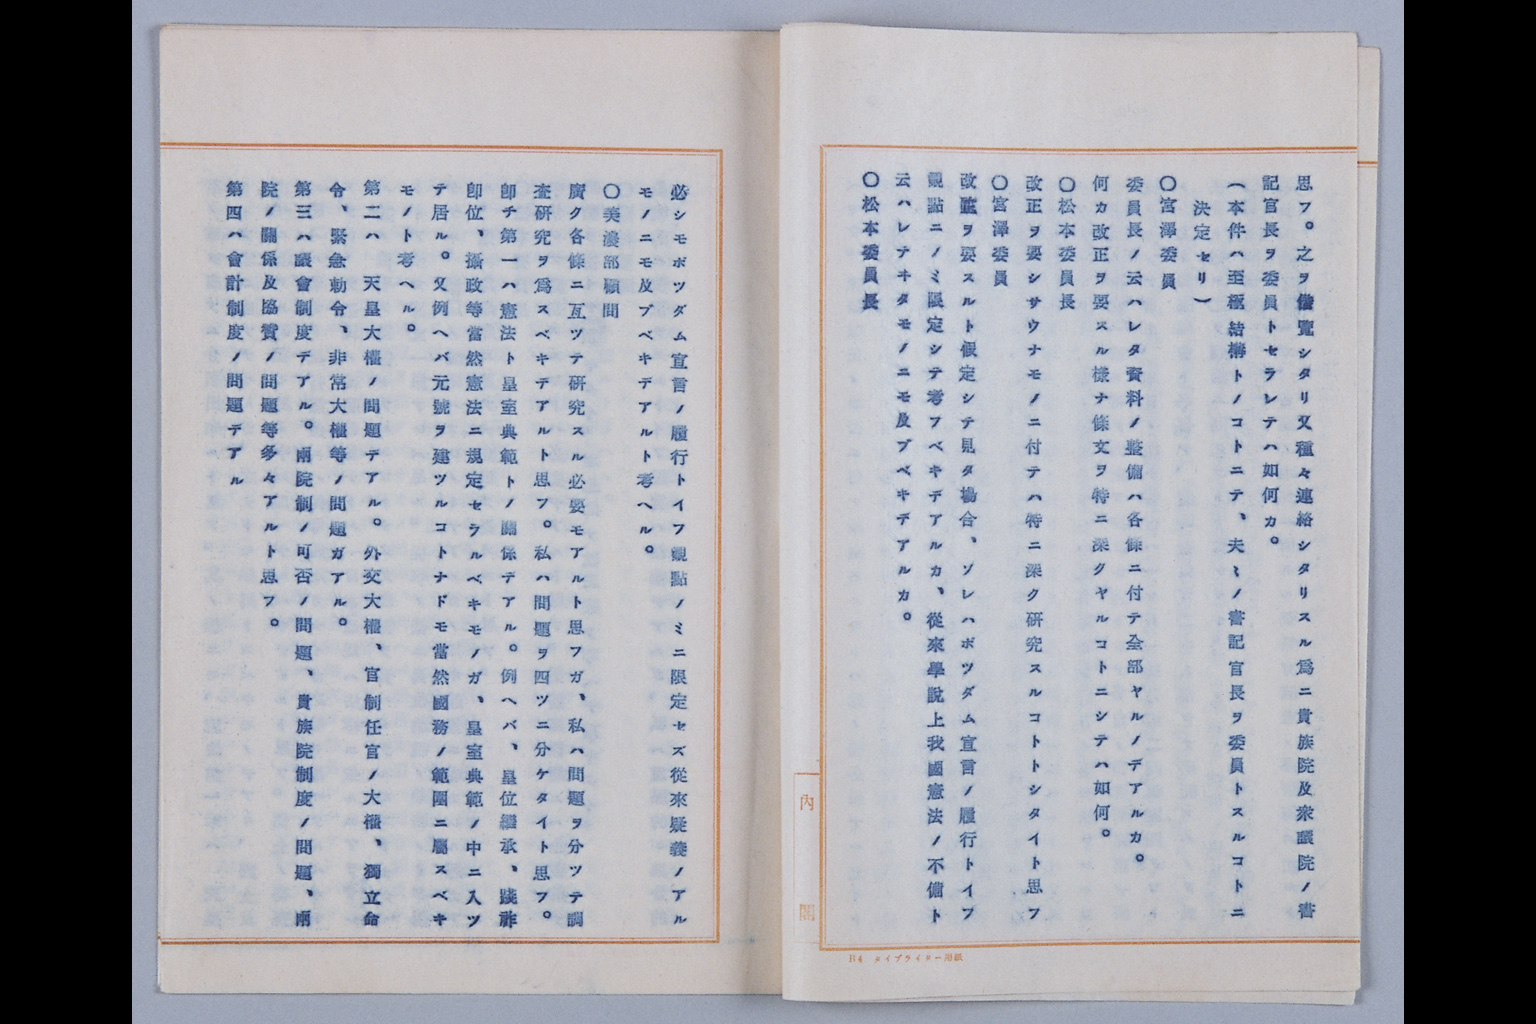 思フ。之ヲ備覽シタリ又種々連絡シタリスル爲ニ貴族院及衆議院ノ書
記官長ヲ委員トセラレテハ如何カ。
(本件ハ至極結構トノコトニテ、夫〻ノ書記官長ヲ委員トスルコトニ
決定セリ)
〇宮澤委員
委員長ノ云ハレタ資料ノ整備ハ各條ニ付テ全部ヤルノデアルカ。
何カ改正ヲ要スル樣ナ條文ヲ特ニ深クヤルコトニシテハ如何。
〇松本委員長
改正ヲ要シサウナモノニ付テハ特ニ深ク研究スルコトトシタイト思フ
〇宮澤委員
改正ヲ要スルト假定シテ見タ場合、ソレハポツダム宣言ノ履行トイフ
觀點ニノミ限定シテ考フベキデアルカ、從來學說上我國憲法ノ不備ト
云ハレテキタモノニモ及ブベキデアルカ。
〇松本委員長
必シモポツダム宣言ノ履行トイフ觀點ノミニ限定セズ從來疑義ノアル
モノニモ及ブベキデアルト考ヘル。
〇美濃部顧問
廣ク各條ニ亙ツテ硏究スル必要モアルト思フガ、私ハ問題ヲ分ツテ調
査硏究ヲ爲スベキデアルト思フ。私ハ問題ヲ四ツニ分ケタイト思フ。
卽チ第一ハ憲法ト皇室典範トノ關係デアル。例ヘバ、皇位繼承、踐祚
卽位、攝政等當然憲法ニ規定セラルベキモノガ、皇室典範ノ中ニ入ツ
テ居ル。又例ヘバ元號ヲ建ツルコトナドモ當然國務ノ範圍ニ屬スベキ
モノト考ヘル。
第二ハ 天皇大權ノ問題デアル。外交大權、官制任官ノ大權、獨立命
令、緊急勅令、非常大權等ノ問題ガアル。
第三ハ議會制度デアル。兩院制ノ可否ノ問題、貴族院制度ノ問題、兩
院ノ關係及協贊ノ問題等多々アルト思フ。
第四ハ會計制度ノ問題デアル
內閣
B4 タイプライター用紙